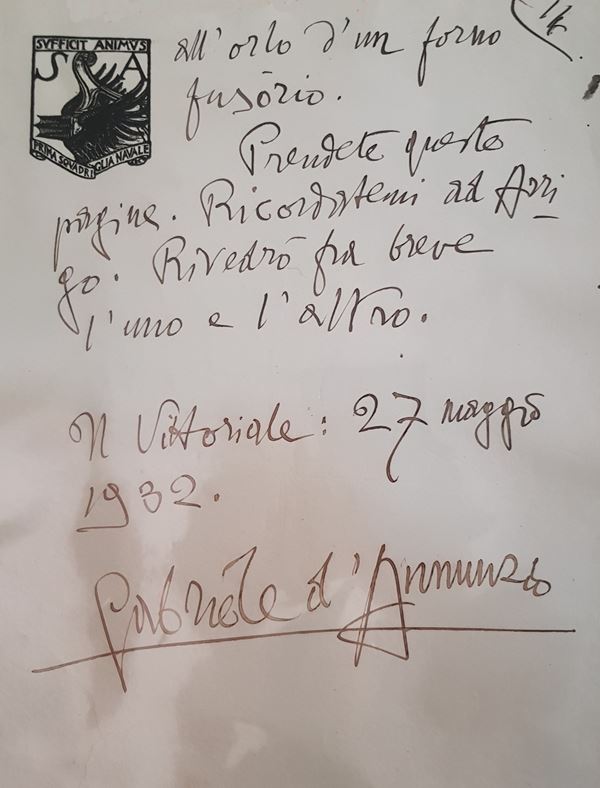 14
SVFFICIT ANIMVS
S A
PRIMA SQVADRIGLIA NAVALE
all'orlo d'un forno
fusòrio.
Prendete queste
pagine. Ricordatemi ad Arri
go. Rivedrò fra breve
l'uno e l'altro.
Il Vittoriale: 27 maggio
1932.
Gabriele d'Annunzio